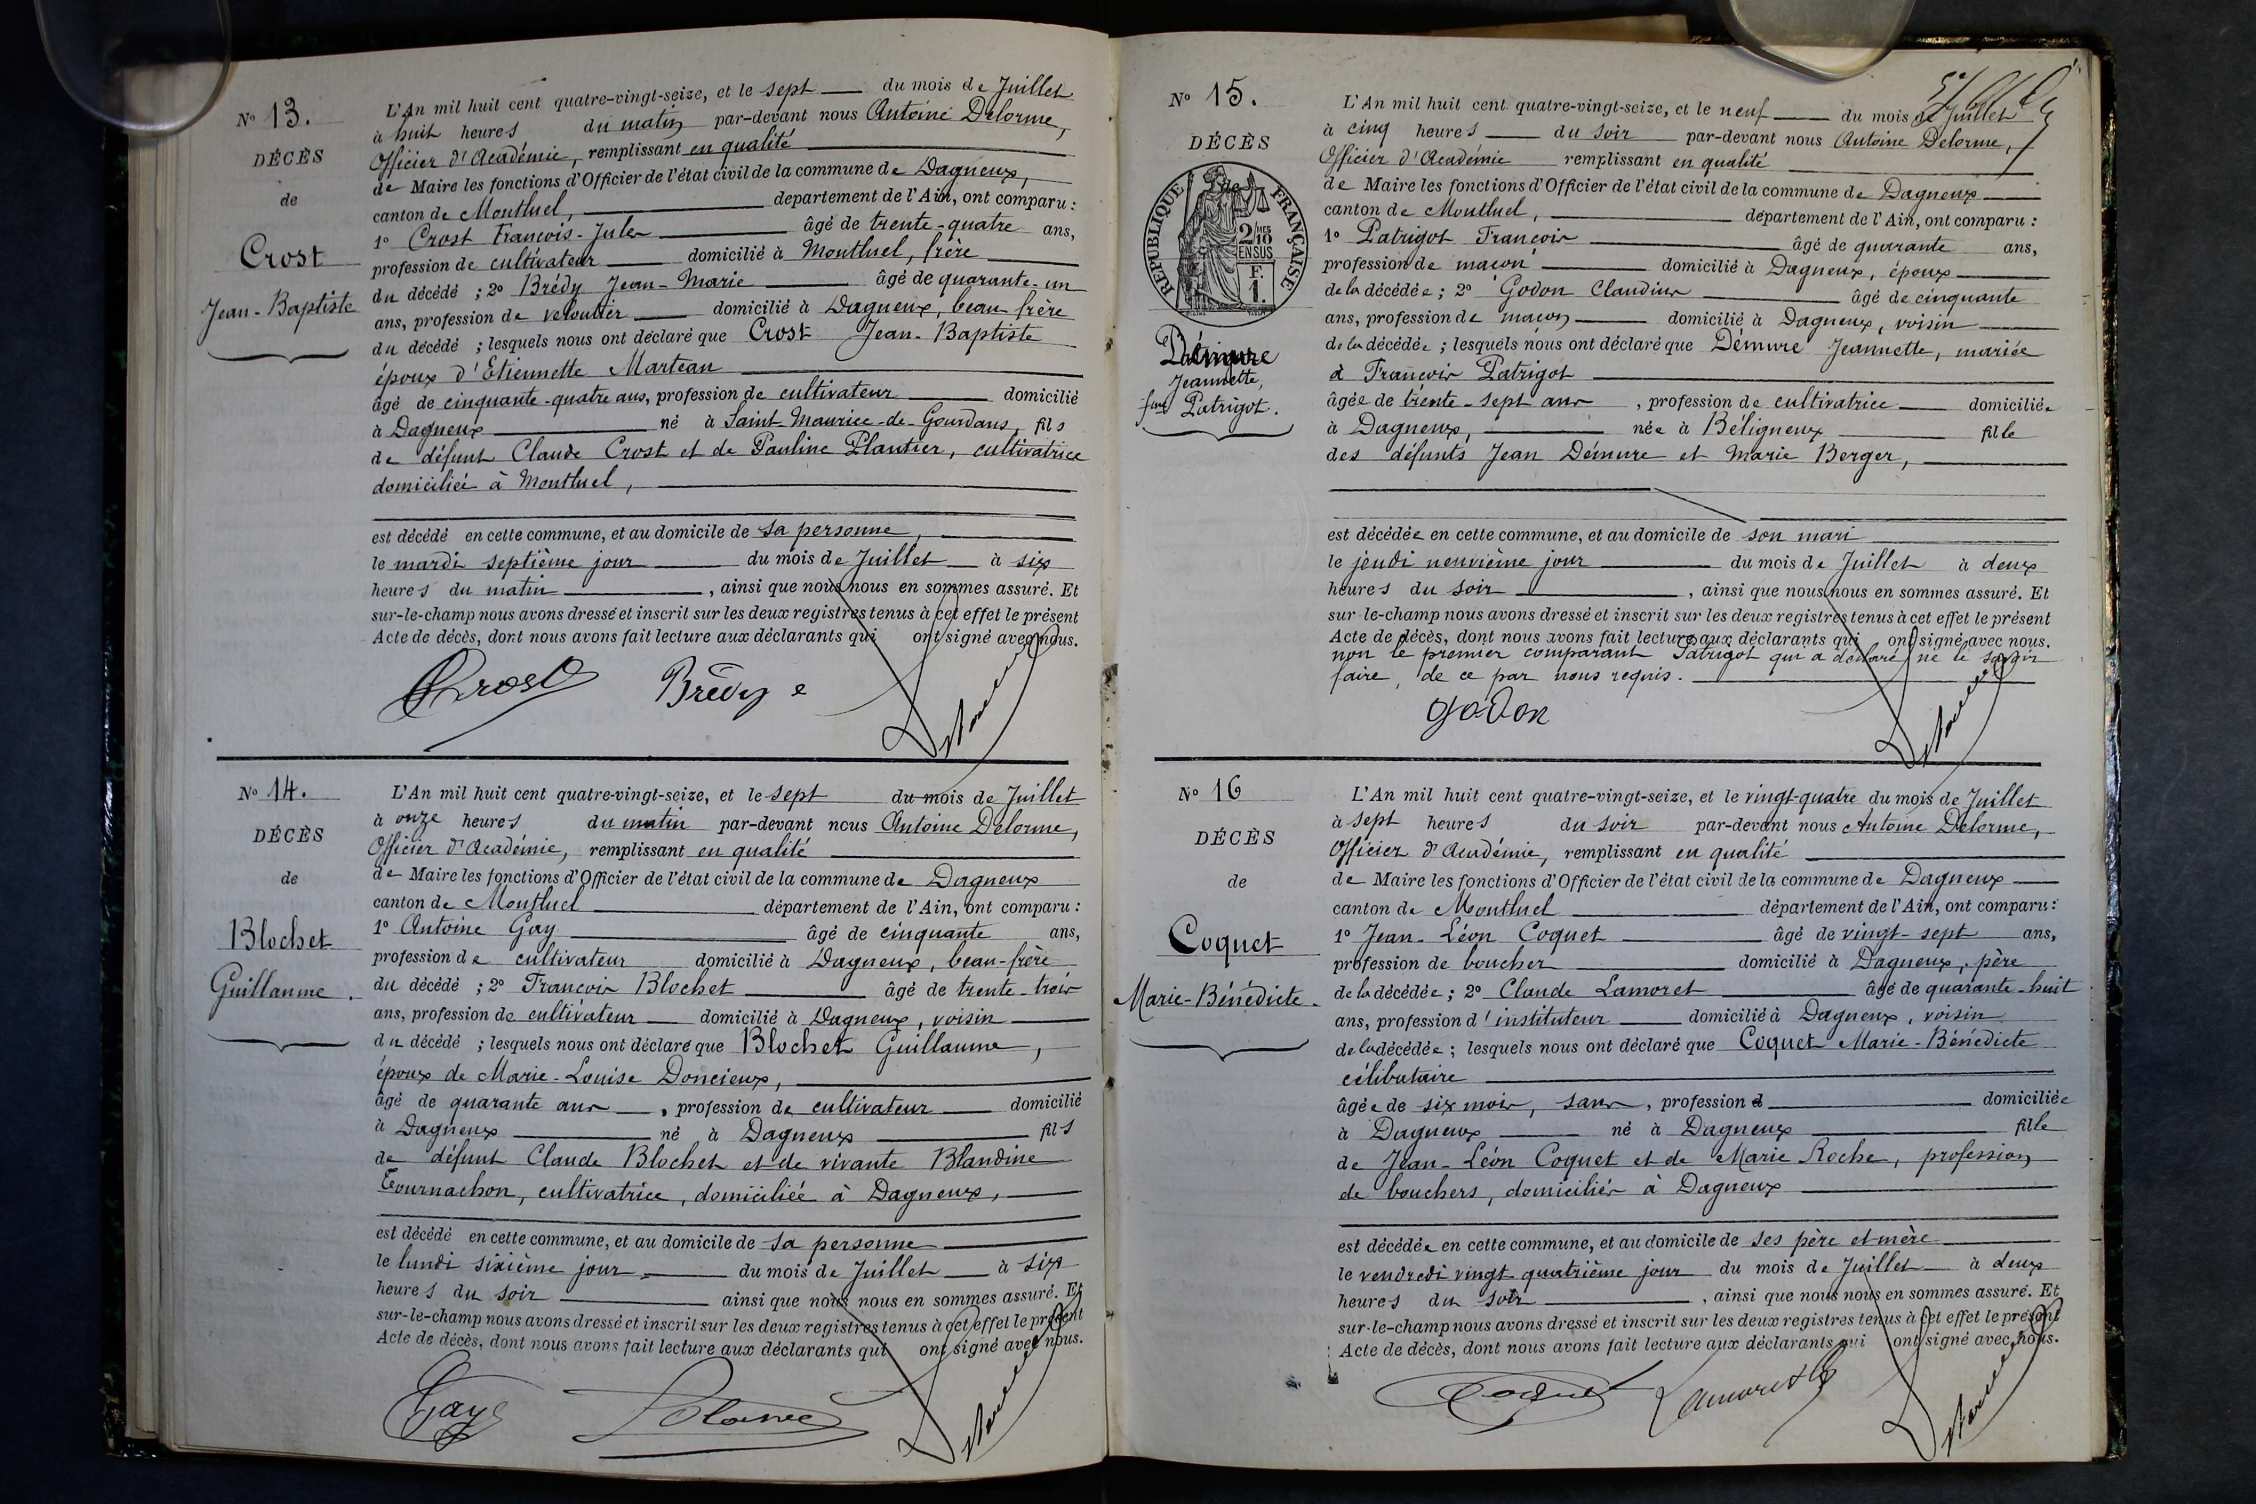 N° 13.
DÉCÈS
de
Crost
Jean-Baptiste
L'An mil huit cent quatre-vingt-seize, et le sept du mois de Juillet
à huit heures du matin par-devant nous Antoine Delorme,
Officier d'Académie, remplissant en qualité
de Maire les fonctions d'Officier de l'état civil de la commune de Dagneux,
canton de Montluel, département de l'Ain, ont comparu :
1° Crost François-Jules âgé de trente-quatre ans,
profession de cultivateur domicilié à Montluel, frère
du décédé ; 2° Brédy Jean-Marie âgé de quarante-un
ans, profession de veloutier domicilié à Dagneux, beau-frère
du décédé ; lesquels nous ont déclaré que Crost Jean-Baptiste
époux d'Etiennette Marteau
âgé de cinquante-quatre ans, profession de cultivateur domicilié
à Dagneux né à Saint-Maurice-de-Gourdans, fils
de défunt Claude Crost et de Pauline Plantier, cultivatrice
domiciliée à Montluel,
est décédé en cette commune, et au domicile de sa personne,
le mardi septième jour du mois de Juillet à six
heures du matin, ainsi que nous nous en sommes assuré. Et
sur-le-champ nous avons dressé et inscrit sur les deux registres tenus à cet effet le présent
Acte de décès, dont nous avons fait lecture aux déclarants qui ont signé avec nous.
Crost Brédy Delorme
N° 14.
DÉCÈS
de
Blochet
Guillaume.
L'An mil huit cent quatre-vingt-seize, et le sept du mois de Juillet
à onze heures du matin par-devant nous Antoine Delorme,
Officier d'Académie, remplissant en qualité
de Maire les fonctions d'Officier de l'état civil de la commune de Dagneux
canton de Montluel département de l'Ain, ont comparu :
1° Antoine Gay âgé de cinquante ans,
profession de cultivateur domicilié à Dagneux, beau-frère
du décédé ; 2° François Blochet âgé de trente-trois
ans, profession de cultivateur domicilié à Dagneux, voisin
du décédé ; lesquels nous ont déclaré que Blochet Guillaume,
époux de Marie-Louise Doncieux,
âgé de quarante ans, profession de cultivateur domicilié
à Dagneux né à Dagneux fils
de défunt Claude Blochet et de vivante Blandine
Tournachon, cultivatrice, domiciliée à Dagneux,
est décédé en cette commune, et au domicile de sa personne
le lundi sixième jour du mois de Juillet à six
heures du soir ainsi que nous nous en sommes assuré. Et
sur-le-champ nous avons dressé et inscrit sur les deux registres tenus à cet effet le présent
Acte de décès, dont nous avons fait lecture aux déclarants qui ont signé avec nous.
Gay Delorme
N° 15.
DÉCÈS
RÉPUBLIQUE FRANÇAISE
2/10 MES
EN SUS
F.
1.
Démure
Jeannette,
fme Patrigot.
L'An mil huit cent quatre-vingt-seize, et le neuf du mois de Juillet
à cinq heures du soir par-devant nous Antoine Delorme,
Officier d'Académie remplissant en qualité
de Maire les fonctions d'Officier de l'état civil de la commune de Dagneux
canton de Montluel, département de l'Ain, ont comparu :
1° Patrigot François âgé de quarante ans,
profession de maçon domicilié à Dagneux, époux
de la décédée ; 2° Godon Claudius âgé de cinquante
ans, profession de maçon domicilié à Dagneux, voisin
de la décédée ; lesquels nous ont déclaré que Démure Jeannette, mariée
à François Patrigot
âgée de trente-sept ans, profession de cultivatrice domiciliée
à Dagneux, née à Béligneux fille
des défunts Jean Démure et Marie Berger,
est décédée en cette commune, et au domicile de son mari
le jeudi neuvième jour du mois de Juillet à deux
heures du soir, ainsi que nous nous en sommes assuré. Et
sur-le-champ nous avons dressé et inscrit sur les deux registres tenus à cet effet le présent
Acte de décès, dont nous avons fait lecture aux déclarants qui ont signé avec nous.
non le premier comparant Patrigot qui a déclaré ne le savoir
faire, de ce par nous requis.
Godon Delorme
N° 16
DÉCÈS
de
Coquet
Marie-Bénédicte.
L'An mil huit cent quatre-vingt-seize, et le vingt-quatre du mois de Juillet
à sept heures du soir par-devant nous Antoine Delorme,
Officier d'Académie, remplissant en qualité
de Maire les fonctions d'Officier de l'état civil de la commune de Dagneux
canton de Montluel département de l'Ain, ont comparu :
1° Jean-Léon Coquet âgé de vingt-sept ans,
profession de boucher domicilié à Dagneux, père
de la décédée ; 2° Claude Lamoret âgé de quarante-huit
ans, profession d'instituteur domicilié à Dagneux, voisin
de la décédée ; lesquels nous ont déclaré que Coquet Marie-Bénédicte
célibataire
âgée de six mois, sans, profession d domiciliée
à Dagneux né à Dagneux fille
de Jean-Léon Coquet et de Marie Roche, profession
de bouchers, domiciliés à Dagneux
est décédée en cette commune, et au domicile de ses père et mère
le vendredi vingt-quatrième jour du mois de Juillet à deux
heures du soir, ainsi que nous nous en sommes assuré. Et
sur-le-champ nous avons dressé et inscrit sur les deux registres tenus à cet effet le présent
Acte de décès, dont nous avons fait lecture aux déclarants qui ont signé avec nous.
Coquet Lamoret Delorme